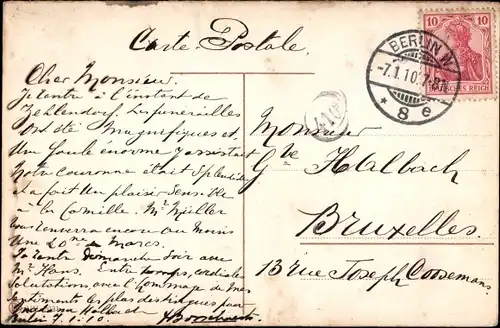 Carte Postale.
10 10
DEUTSCHES REICH
BERLIN W
-7.1.10. 7-8 N
* 8 e
Cher Monsieur
Je rentre à l'instant de
Zehlendorf. Les funerailles
ont été magnifiques et
une foule énorme y assistait
Notre couronne était splendide
et a fait un plaisir sensible
à la famille. Mr Müller
vous enverra encore au moins
une 20ne de Marcs.
dimanche soir avec
Mr Hans. Entre temps, cordiales
salutations avec l'hommage de mes
sentiments les plus distingués pour
Madame Halbach
7.1.10.
Monsieur
Gve Halbach
Bruxelles.
13 rue Joseph Coosemans.